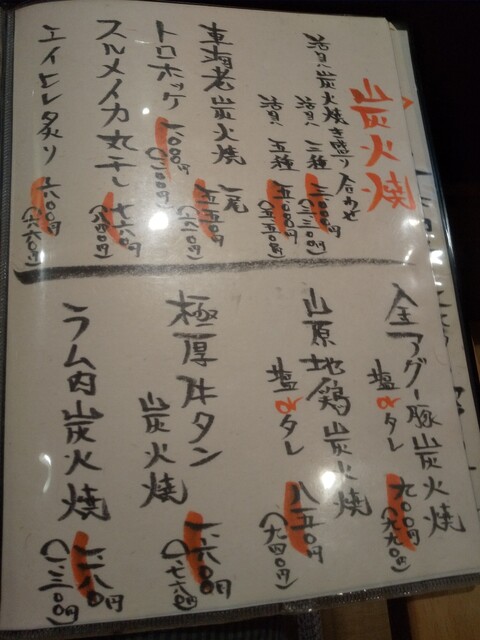 炭火焼
活貝炭火焼き盛り合わせ
活貝 三種 三〇〇〇円
(三三〇〇円)
活貝 五種 五〇〇〇円
(五五〇〇円)
車海老炭火焼 一尾
五五〇円
トロホッケ 一八〇〇円
スルメイカ丸干し 七六〇円
(八四〇円)
エイヒレ炙り 六〇〇円
(六六〇円)
金アグー豚炭火焼
塩orタレ 九〇〇円
(九九〇円)
山原地鶏炭火焼
塩orタレ 八五〇円
(九四〇円)
極厚牛タン
炭火焼 一、六〇〇円
(一、七六〇円)
ラム肉炭火焼
一、一八〇円
(一、三〇〇円)